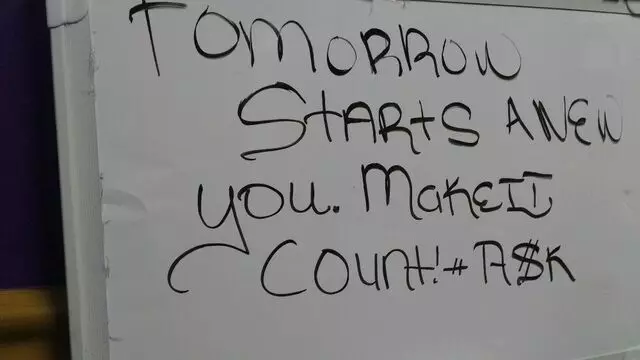 TOMORROW
STARTS A NEW
YOU. MAKE IT
COUNT! #A$K